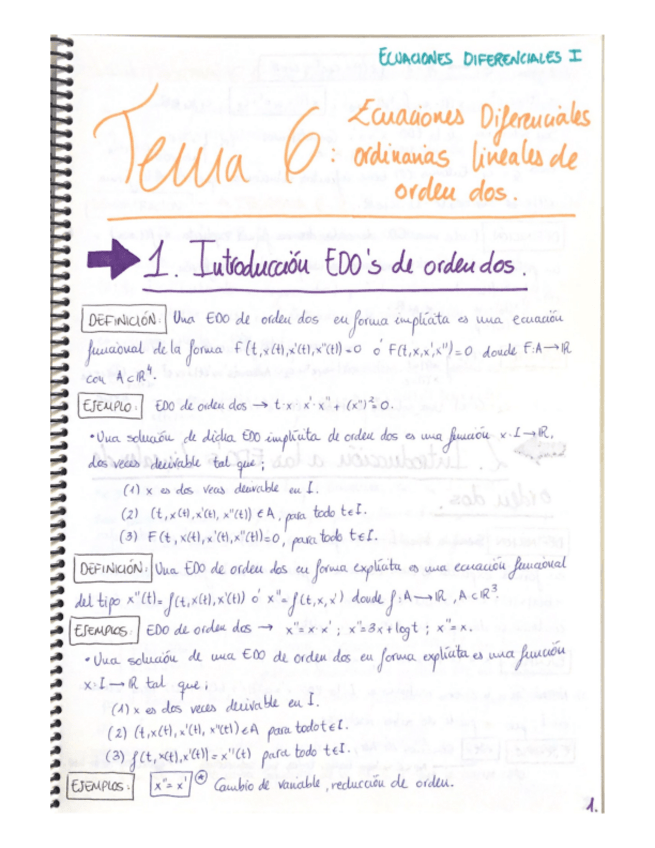 ECUACIONES DIFERENCIALES I
Tema 6: Ecuaciones Diferenciales
ordinarias lineales de
orden dos.
1. Introducción EDO's de orden dos.
DEFINICIÓN: Una EDO de orden dos en forma implícita es una ecuación
funcional de la forma F(t,x(t),x'(t),x''(t))=0 ó F(t,x,x',x'')=0 donde F:A→ℝ
con A⊂ℝ⁴.
EJEMPLO: EDO de orden dos → t·x·x'·x''+(x'')²=0.
• Una solución de dicha EDO implícita de orden dos es una función x:I→ℝ,
dos veces derivable tal que:
(1) x es dos veces derivable en I.
(2) (t,x(t),x'(t),x''(t))∈A, para todo t∈I.
(3) F(t,x(t),x'(t),x''(t))=0, para todo t∈I.
DEFINICIÓN: Una EDO de orden dos en forma explícita es una ecuación funcional
del tipo x''(t)=f(t,x(t),x'(t)) ó x''=f(t,x,x') donde f:A→ℝ, A⊂ℝ³.
EJEMPLOS: EDO de orden dos → x''=x·x' ; x''=3x+logt ; x''=x.
• Una solución de una EDO de orden dos en forma explícita es una función
x:I→ℝ tal que:
(1) x es dos veces derivable en I.
(2) (t,x(t),x'(t),x''(t))∈A para todo t∈I.
(3) f(t,x(t),x'(t))=x''(t) para todo t∈I.
EJEMPLOS: x''=x' ⊛ Cambio de variable, reducción de orden.
1.